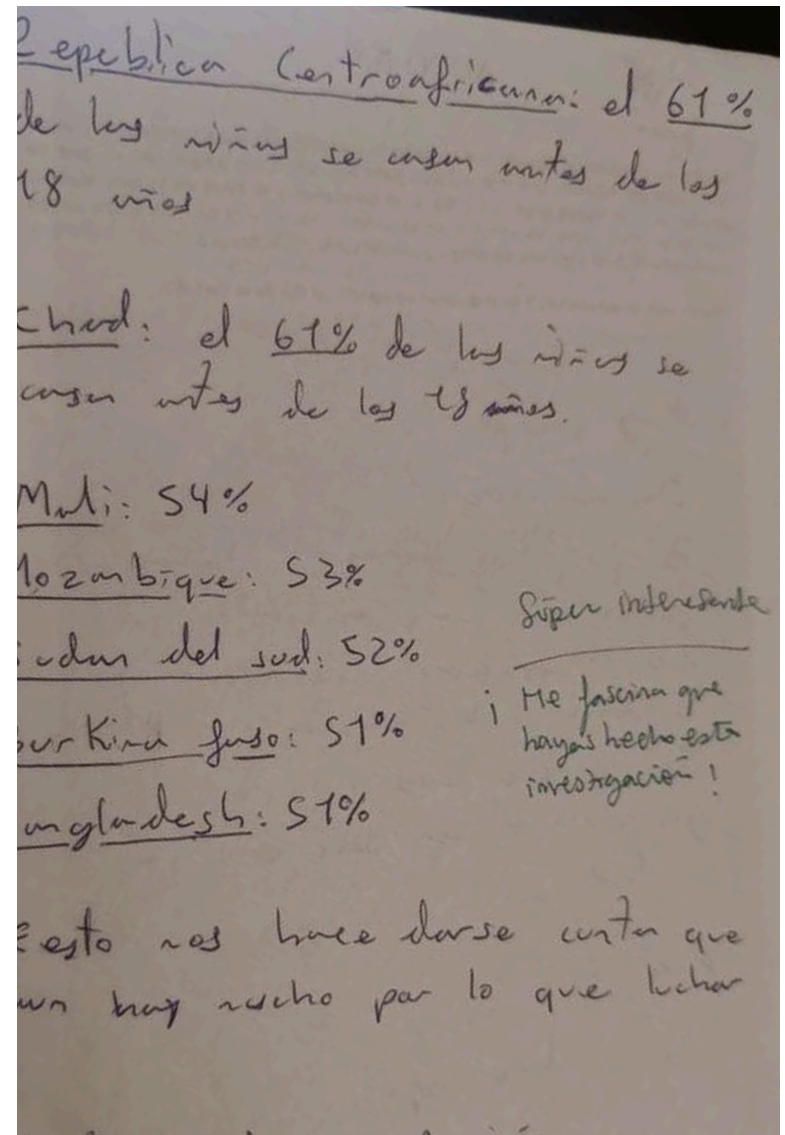 Repeblica Centroafricana: el 61%
de las niñas se casan antes de los
18 años
Chad: el 61% de las niñas se
casan antes de los 18 años.
Mali: 54%
Mozambique: 53%
Sudan del sud: 52%
Burkina faso: 51%
Bangladesh: 51%
Súper interesante
¡Me fascina que
hayas hecho esta
investigación!
esto nos hace darse cuenta que
aun hay mucho por lo que luchar